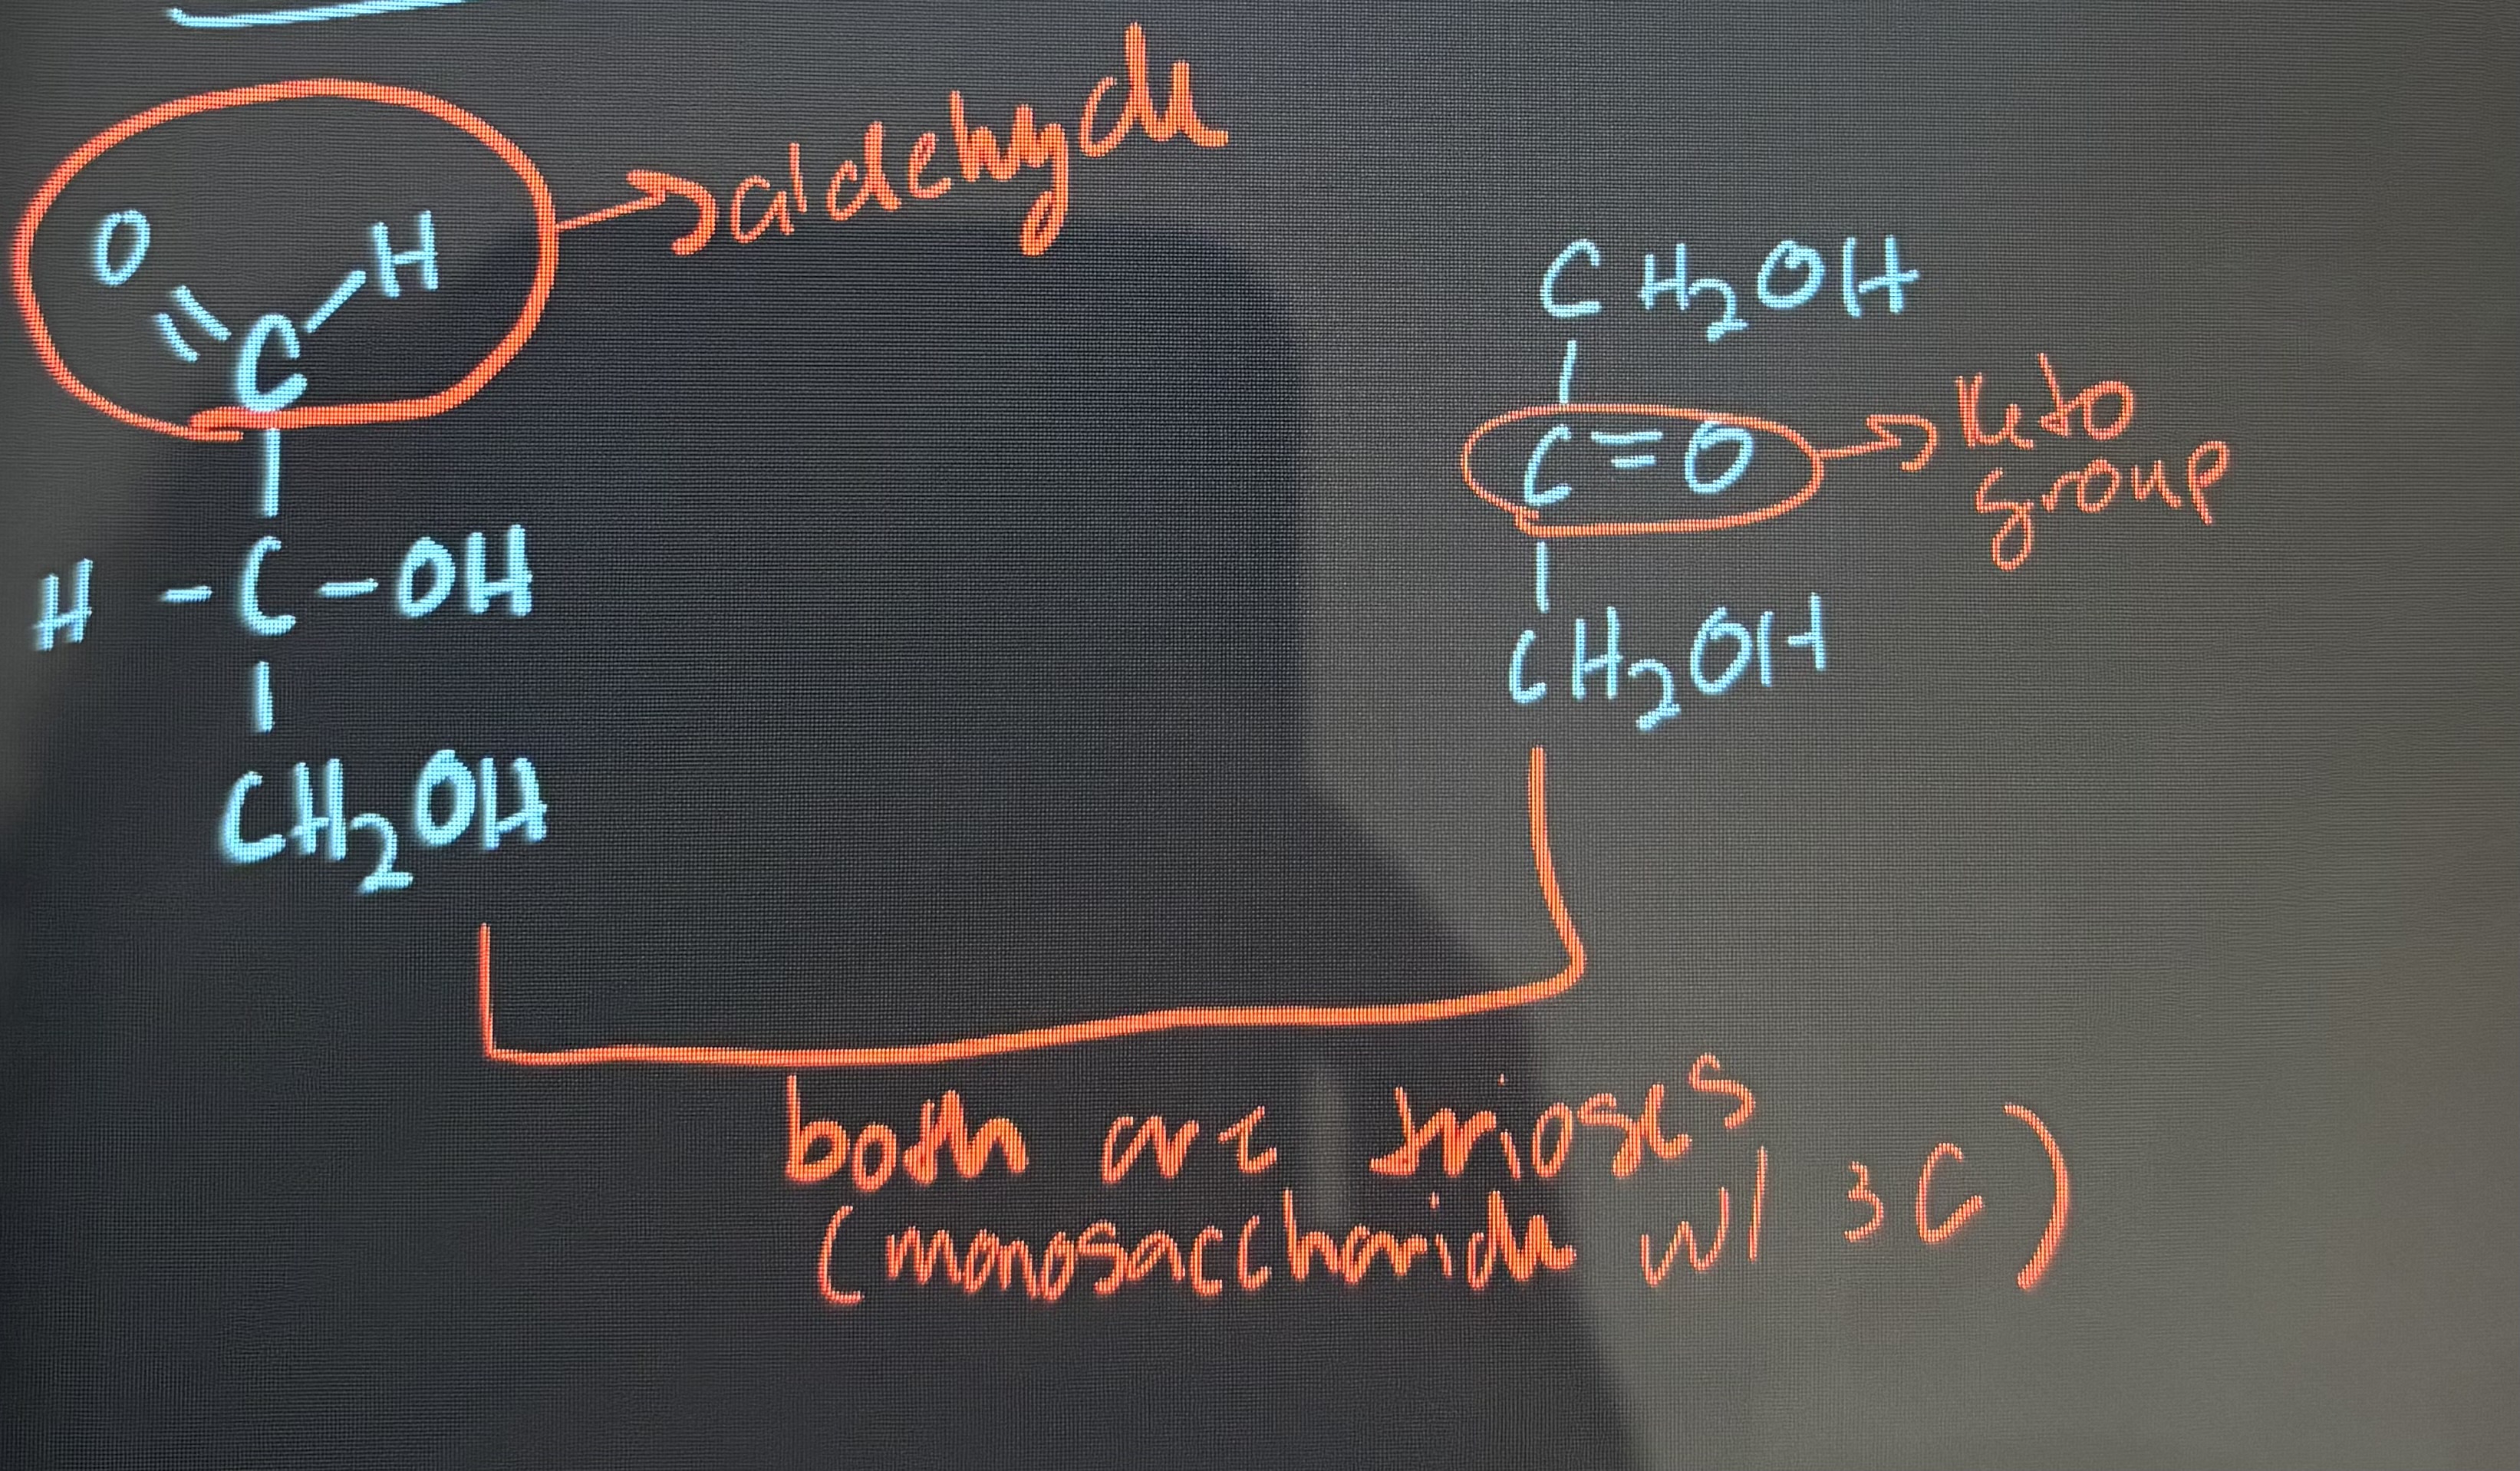 aldehyde
O
H
C
H - C - OH
CH₂OH
CH₂OH
C = O
keto
group
CH₂OH
both are trioses
(monosaccharide w/ 3C)